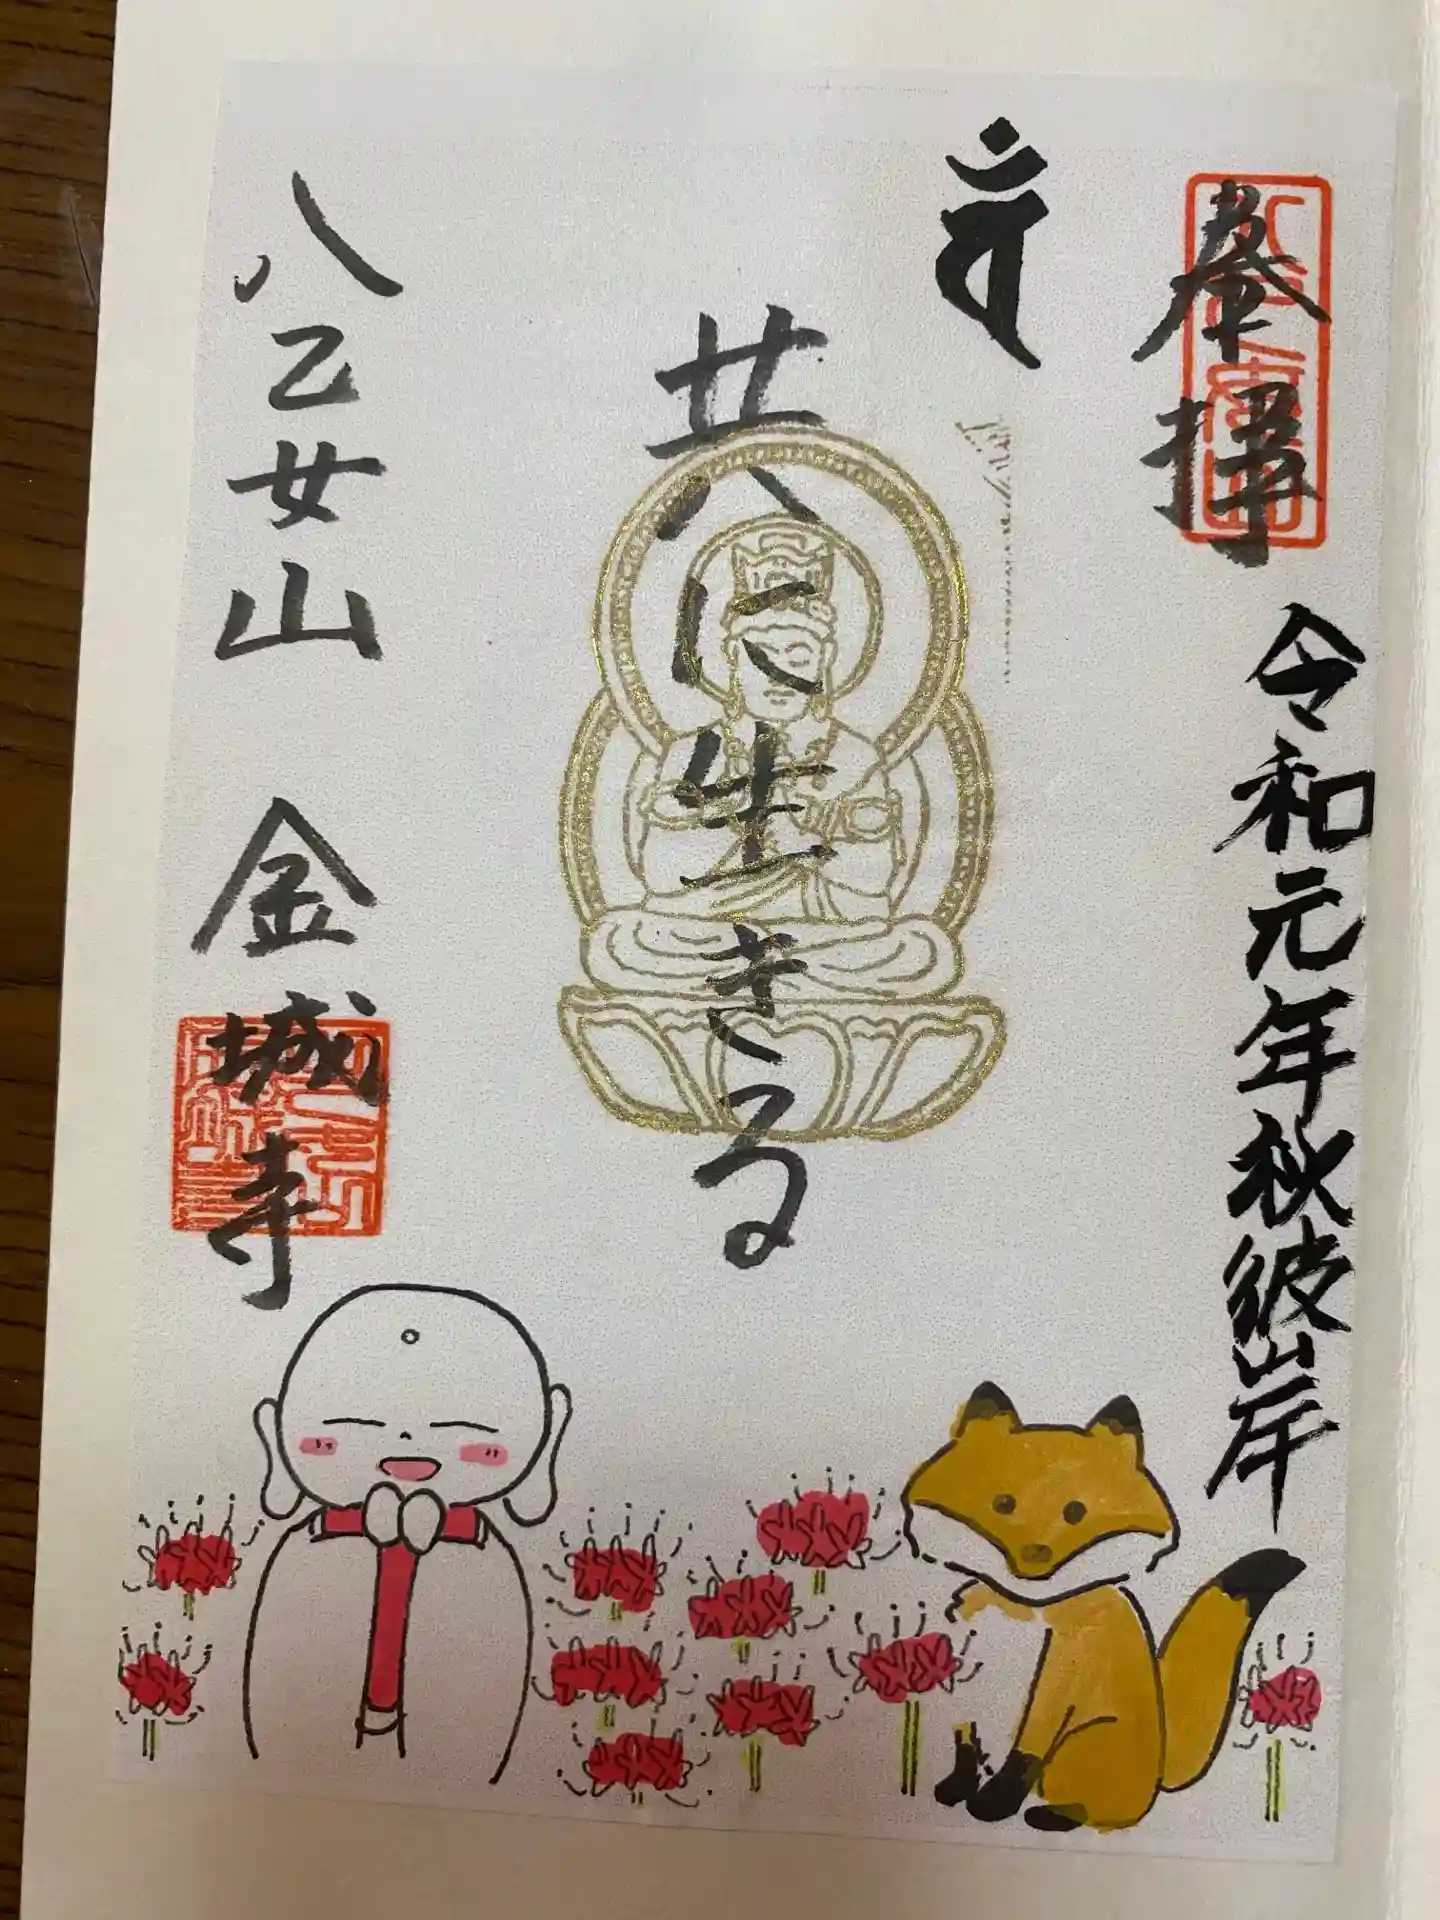 奉拝
令和元年秋彼岸
共に生きる
八乙女山 金城寺